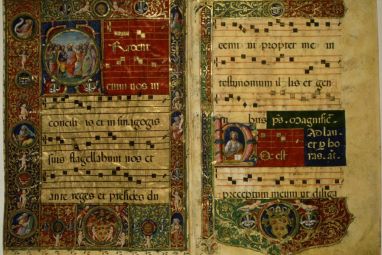 Radent
enim uos in
concilijs et in sinagogis
suis flagellabunt uos et
ante reges et presides du
cemini propter me in
testimonium il lis et gen
bus ps. Magnific̄.
Ad lau.
et p ho
ras. añ.
HOc est
preceptum meum ut diliga